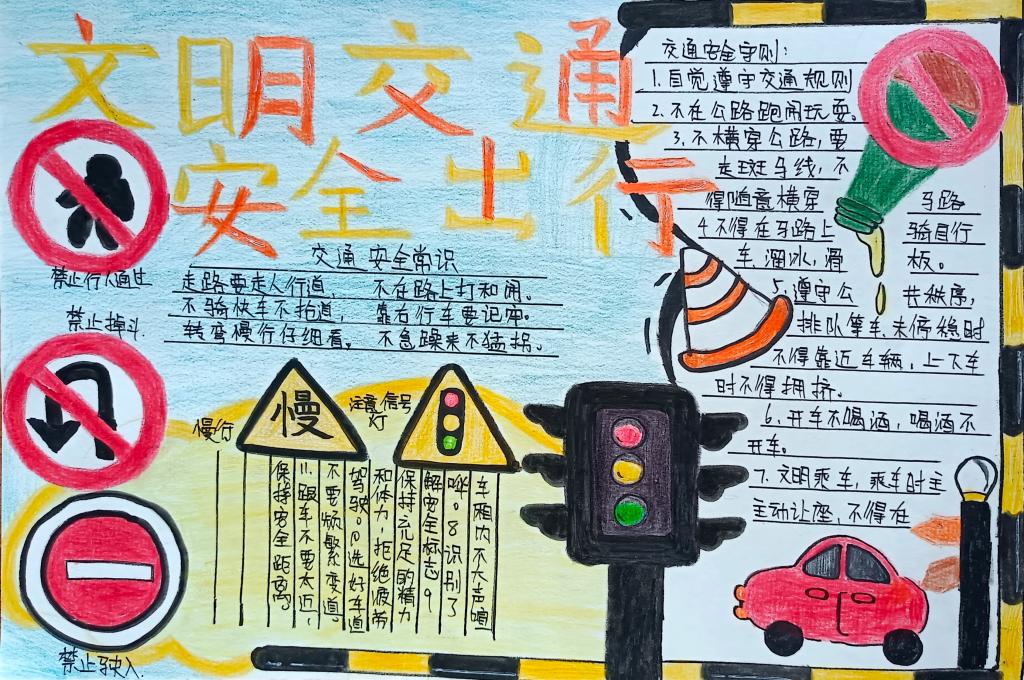 文明交通
安全出行
禁止行人通过
交通安全常识
走路要走人行道， 不在路上打和闹。
不骑快车不抬道， 靠右行车要记牢。
转弯慢行仔细看。 不急躁来不猛拐。
禁止掉斗.
慢行
慢
注意信号
灯
车厢内不大声喧
哗。8识别了
解安全标志9
保持充足的精力
和体力，拒绝疲劳
驾驶。10选好车道
不要频繁变道，
11.跟车不要太近，
保持安全距离
禁止驶入.
交通安全守则：
1.自觉遵守交通规则
2.不在公路跑闹玩耍。
3.不横穿公路，要
走斑马线，不
得随意横穿 马路
4.不得在马路上 骑自行
车，溜冰，滑 板。
5.遵守公 共秩序，
排队等车，未停稳时
不得靠近车辆，上下车
时不得拥挤。
6.开车不喝酒，喝酒不
开车。
7.文明乘车，乘车时主
主动让座，不得在